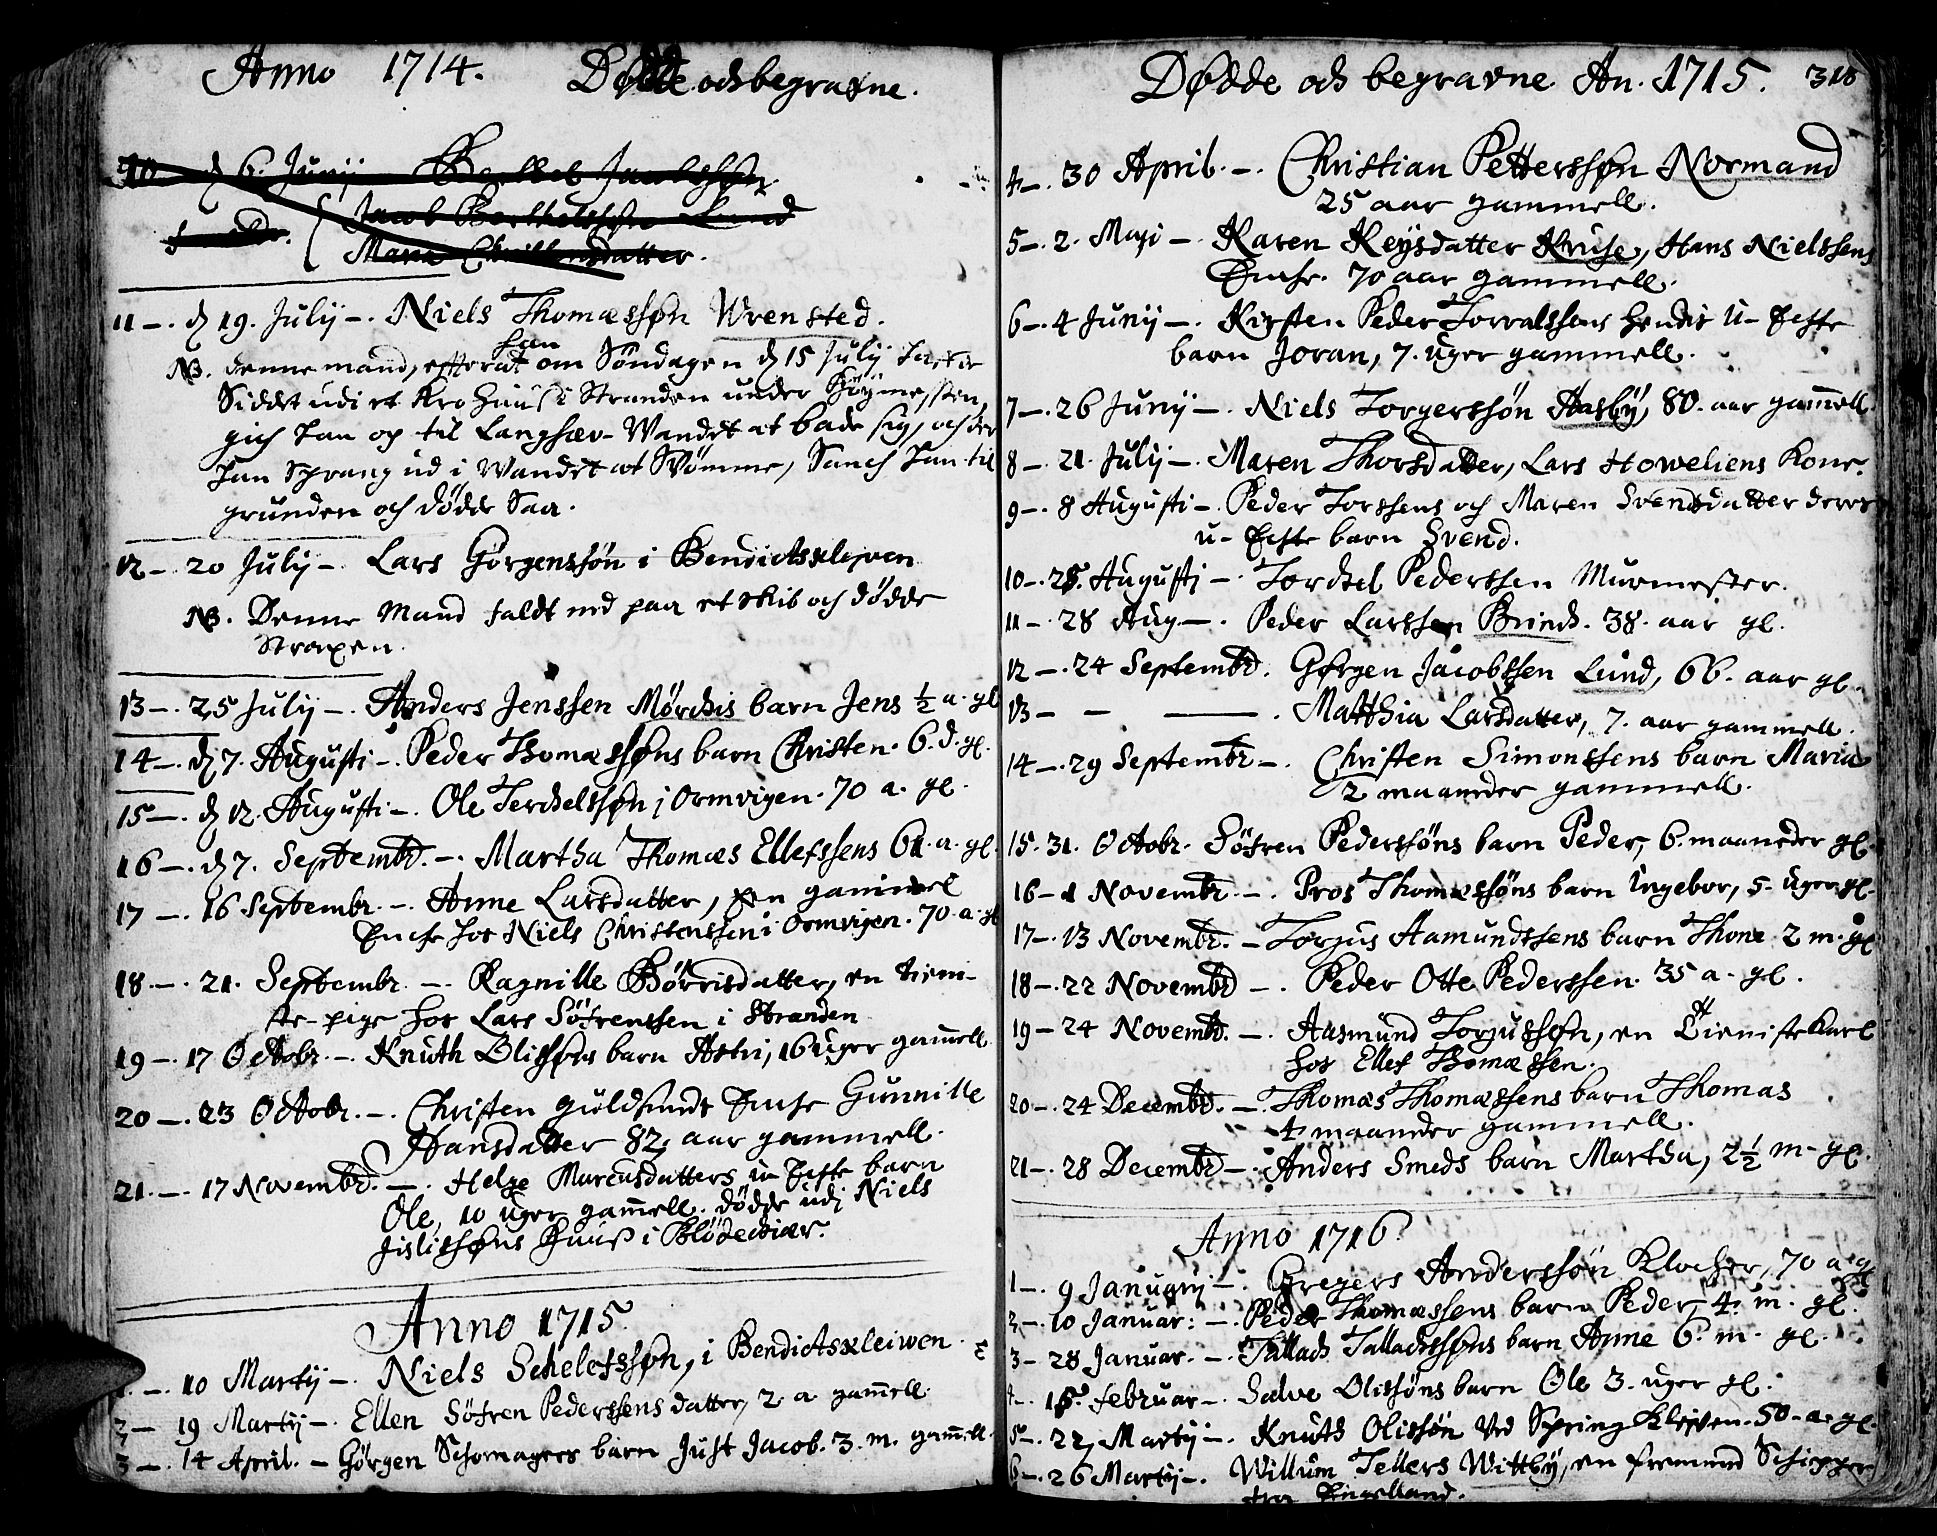 Anno 1714. Dødde och begravne.
10 d 6. Junij Barthel Jacobsøn
Jacob Barthelssøn Lund
Maria Christensdatter.
11 –. d 19. Julij –. Niels Thomæssøn Wrensted.
NB. denne mand, efterat han om Søndagen d 15 Julij hafde
Siddet udi et Kro Huus i Stranden under Høymessen,
gich han op til Langsæv-Wandet at bade sig, och der
han Sprang ud i Wandet at Svømme, Sanch han til
grunden och dødde Saa.
12 –. 20 Julij –. Lars Gørgensøn i Bendictsklejven
NB. Denne Mand faldt ned paa et skib och dødde
Straxen.
13 –. 25 Julij –. Anders Jenssen Mørchis barn Jens ½ a. gl
14 –. d 7. Augusti –. Peder Thomæssøns barn Christen. 6. d. gl.
15 –. d 12. Augusti –. Ole Terchelssøn i Ormvigen. 70 a. gl.
16 –. d 7. Septembr. –. Martha Thomæs Ellefssens 61. a. gl.
17 –. 16 Septembr. –. Anne Larsdatter, en gammel
Encke hos Niels Christenssen i Ormvigen. 70. a. gl
18. –. 21. Septembr. –. Ragnille Børrisdatter, en tieni-
ste-pige hos Lars Søfrenssen i Stranden
19 –. 17 Octobr. –. Knuth Olissøns barn Astri, 16 uger gamell
20 –. 23 Octobr. –. Christen Guldsmeds Encke Gunnille
Hansdatter 82 aar gammell.
21. –. 17 Novembr. –. Helge Marcusdatters u-Echte barn
Ole, 10 uger gamell. dødde udj Niels
Jislissøns Huuss i Blødekiær.
Anno 1715.
1. –. 10 Martij –. Niels Schelefssøn, i Bendictskleiwen.
2 – 19 Martij –. Ellen Søfren Pederssens datter, 2 a gamell.
3 –. 14 April. – Gørgen Schomagers barn Just Jacob. 3. m. gamell.
Dødde och begravne An. 1715. 318
4 –. 30 April. –. Christian Petterssøn Normand
25 aar gammell.
5 –. 2. Maji –. Karen Keysdatter Kruse, Hans Nielssens
Encke. 70 aar gammell.
6 –. 4 Junij –. Kirsten Peder Torvalssens hendis U-Echte
barn Joran, 7. uger gammell.
7 –. 26 Junij –. Niels Torgerssøn Aasbÿ, 80. aar gamell
8 –. 21. Julij –. Maren Thorsdatter, Lars Howeliens Kone.
9 –. 8 Augusti –. Peder Torssens och Maren Svendsdatter deres
u-Echte barn Svend.
10 –. 25. Augusti –. Torchel Pederssen Murmester.
11 –. 28 Aug. –. Peder Larssen Brinch. 38. aar gl.
12 –. 24 Septembr. Gørgen Jacobssen Lund, 66. aar gl.
13 – – —. Matthia Larsdatter, 7. aar gammell.
14 –. 29 Septembr –. Christen Simonssens barn Maria
2 maaneder gammell.
15. 31. Octobr. Søfren Pederssøns barn Peder, 6. maaneder gl.
16 – 1 Novembr. –. Pros Thomæssøns barn Ingebor, 5. uger gl.
17 –. 13 Novembr. – Torjus Aamundssens barn Thone 2 m. gl
18 –. 22 Novembr –. Peder Otte Pederssen. 35 a. gl.
19 – 24 Novembr. –. Aasmund Torjussøn, en Tieniste Karl
hos Ellef Thomæssen.
20 –. 24 Decembr. –. Thomæs Thomæssens barn Thomas
4 maaneder gammell.
21 –. 28 Decembr –. Anders Smeds barn Martha, 2½ m. gl.
Anno 1716.
1 –. 9 Januarij –. Gregers Anderssøn Klocker, 70 a. gl
2 –. 10 Januar: –. Peder Thomæssens barn Peder, 4. m. gl.
3 –. 28 Januar. –. Tallach Tallachssøns barn Anne 6. m. gl.
4 –. 15. februar –. Salve Olissøns barn Ole 3. uger gl.
5 –. 22 Martij –. Knuth Olissøn ved Spring Klejven. 50. a. gl.
6 –. 26 Martij –. Willum Tellers Wittbÿ, en fremmed Schipper
fra Engelland.